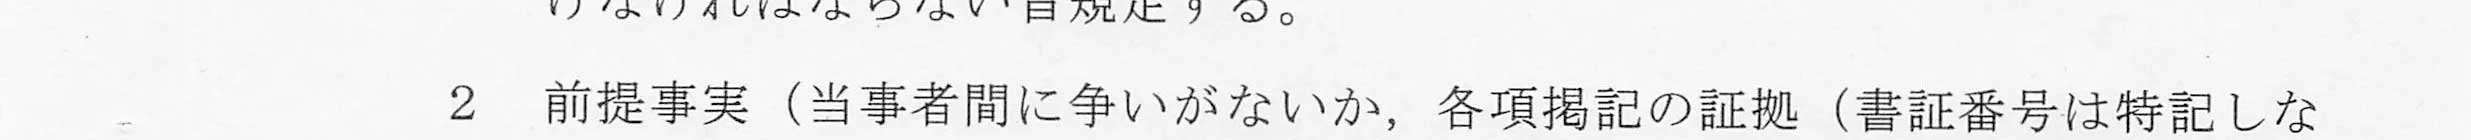 けなければならない旨規定する。
2 前提事実（当事者間に争いがないか，各項掲記の証拠（書証番号は特記しな